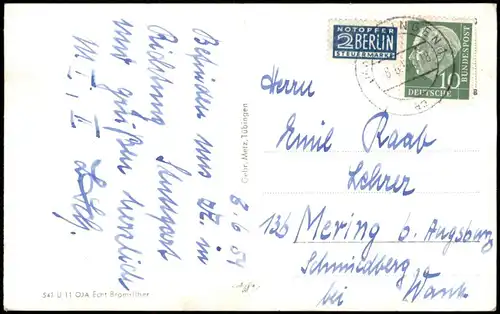 8.6.54
Befinden uns z.Z. in
Richtung Stuttgart
und grüßen herzlich
Gebr. Metz, Tübingen
541 U 11 03A Echt Bromsilber
NOTOPFER
2 BERLIN
STEUERMARKE
DEUTSCHE
BUNDESPOST
10
Herrn
Emil Raab
Lehrer
13b Mering b. Augsburg
Schmiedberg
bei